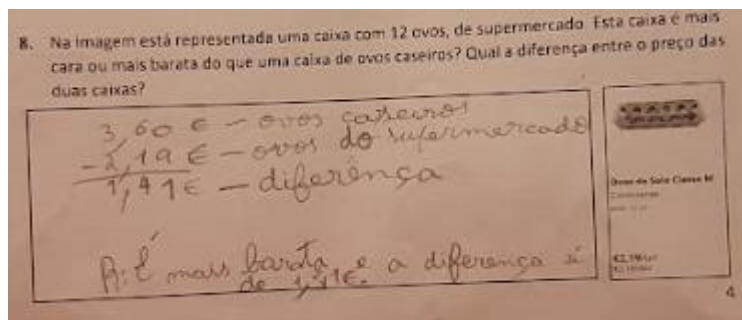 8. Na imagem está representada uma caixa com 12 ovos, de supermercado. Esta caixa é mais
cara ou mais barata do que uma caixa de ovos caseiros? Qual a diferença entre o preço das
duas caixas?
3,60 € - ovos caseiros
- 2,19 € - ovos do supermercado
1,41€ - diferença
R: É mais barata e a diferença é
de 1,41€.
Ovos de Solo Classe M
4